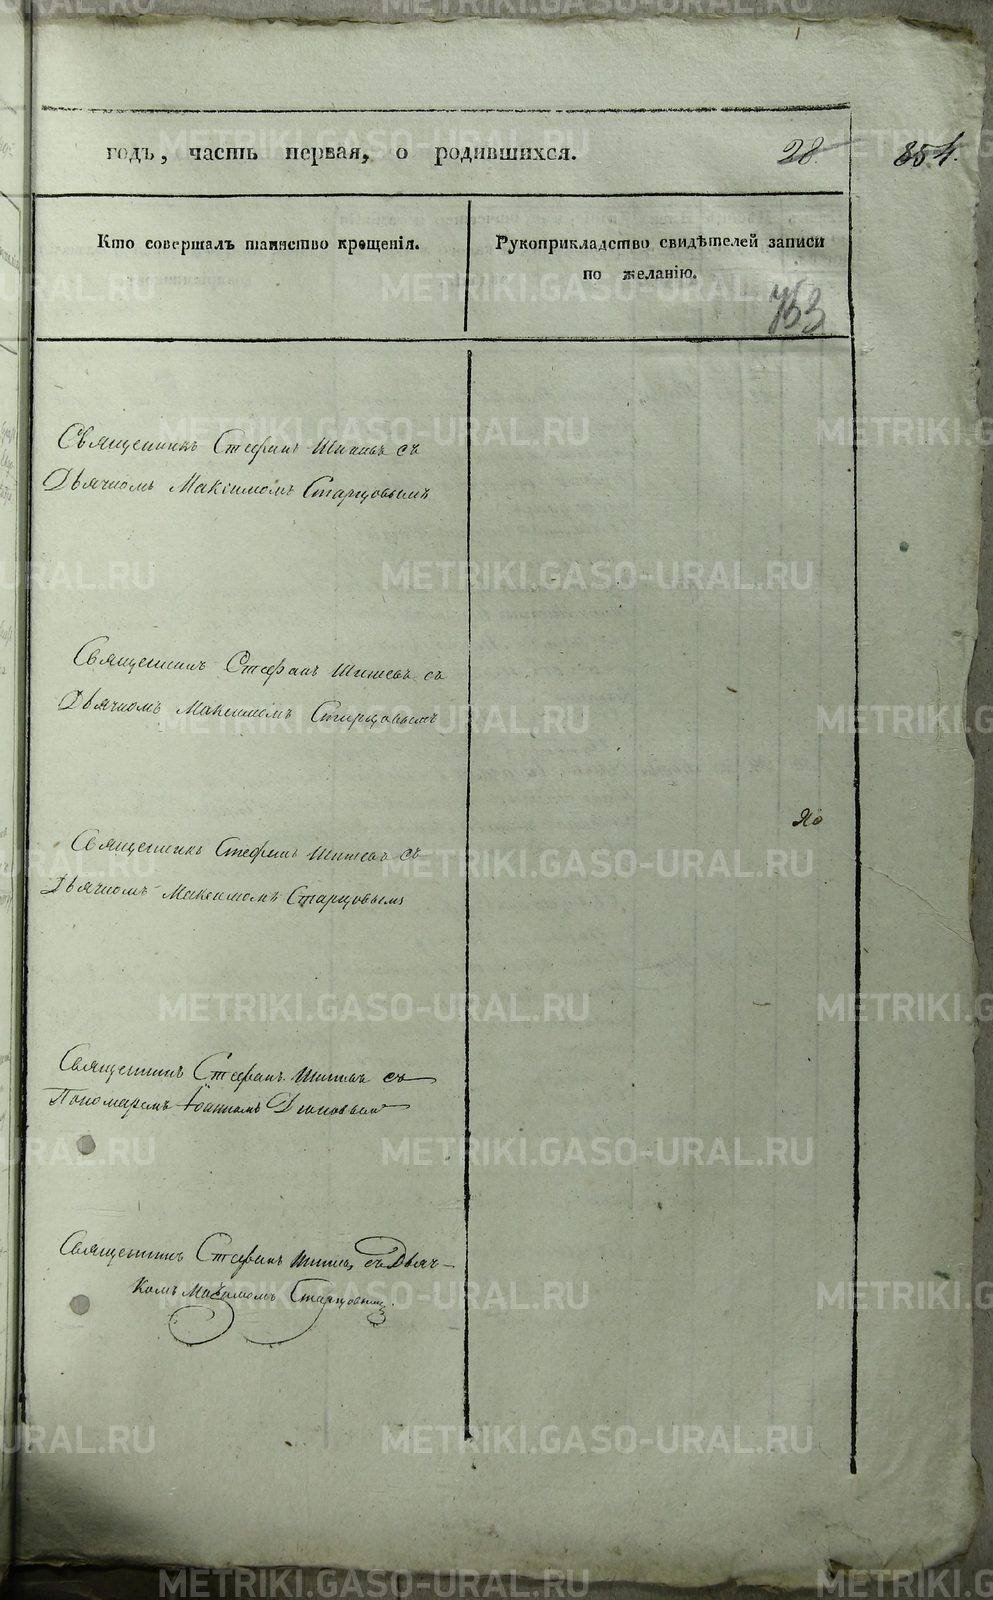 годъ, часть первая, о родившихся.
28.
854.
Кто совершалъ таинство крещенія.
Рукоприкладство свидѣтелей записи
по желанію.
753
Священникъ Стефанъ с
Дьячкомъ Максимомъ Старцовымъ
Священникъ Стефанъ съ
Дьячкомъ Максимомъ Старцовымъ
Священникъ Стефанъ съ
Дьячкомъ Максимомъ Старцовымъ
Священникъ Стефанъ съ
Пономаремъ Іоанномъ
Священникъ Стефанъ съ Дьяч-
комъ Максимомъ Старцовымъ.
METRIKI.GASO-URAL.RU